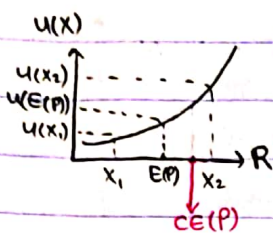 U(X)
U(X₂)
U(E(P))
U(X₁)
X₁ E(P) X₂ R
CE(P)